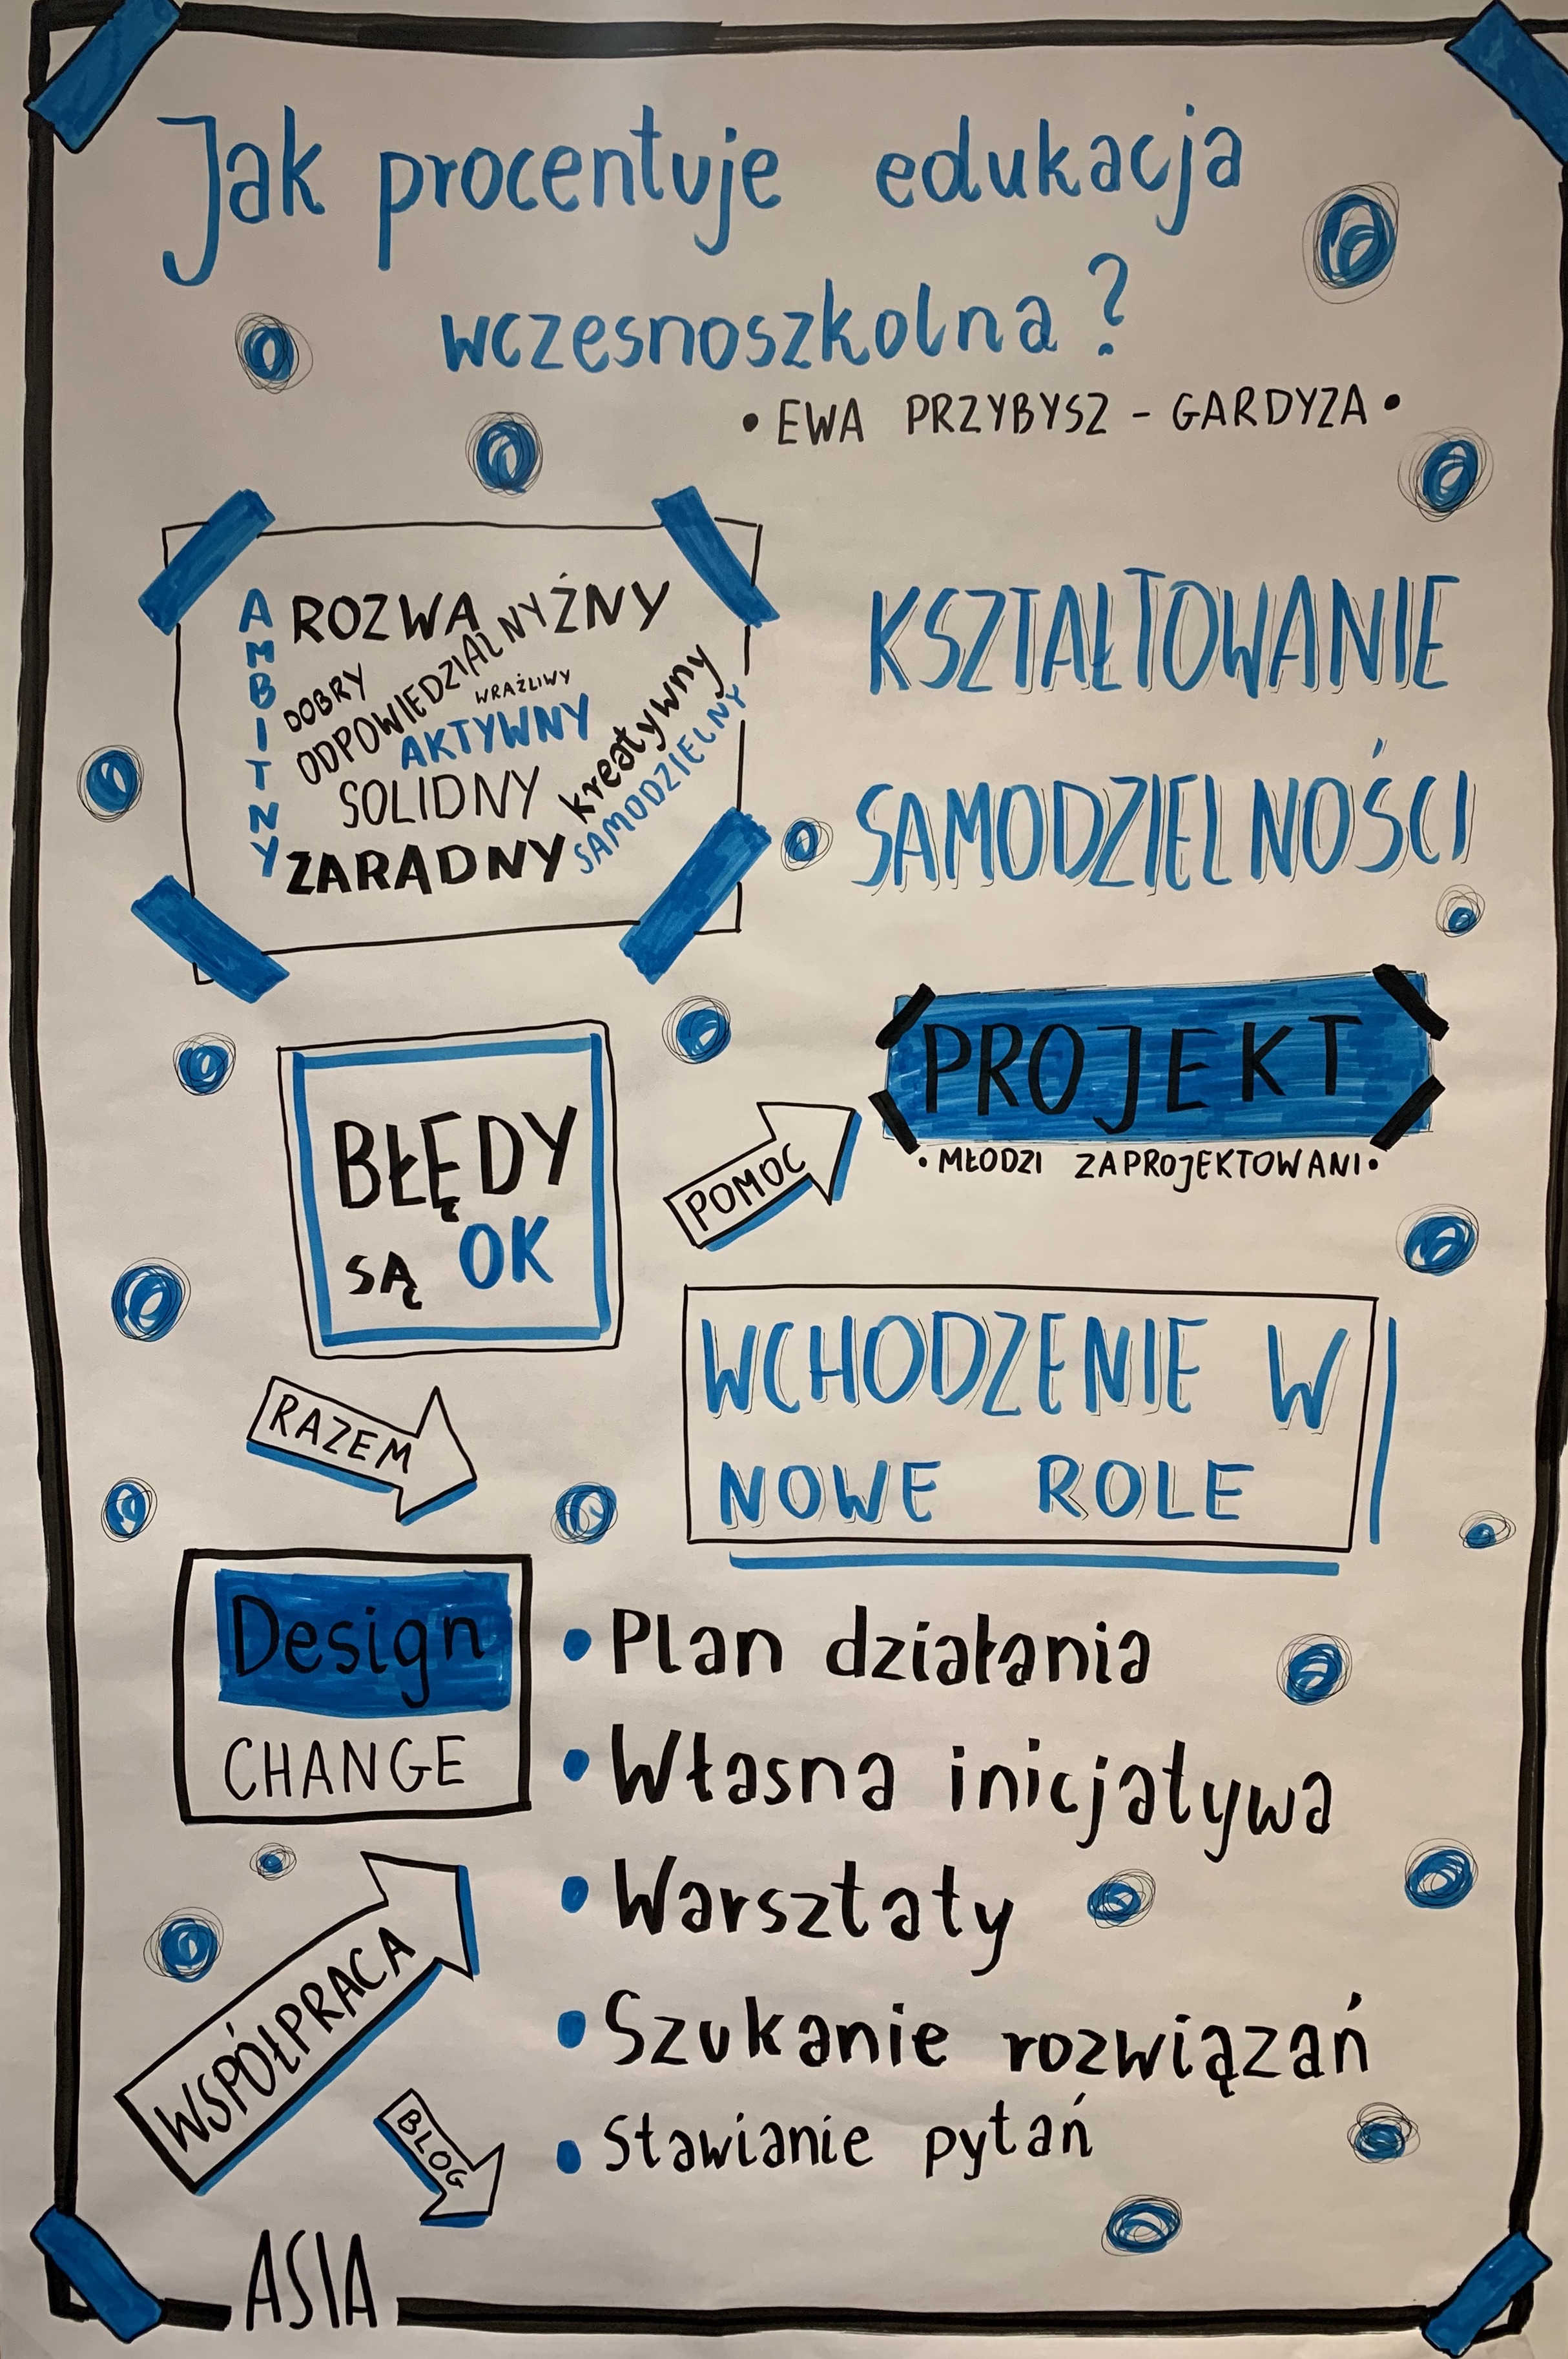 Jak procentuje edukacja
wczesnoszkolna?
• EWA PRZYBYSZ - GARDYZA •
AMBITNY
ROZWAŻNY
DOBRY
ODPOWIEDZIALNY
WRAŻLIWY
AKTYWNY
SOLIDNY
kreatywny
SAMODZIELNY
ZARADNY
KSZTAŁTOWANIE
SAMODZIELNOŚCI
BŁĘDY
SĄ OK
POMOC
PROJEKT
• MŁODZI ZAPROJEKTOWANI •
RAZEM
WCHODZENIE W
NOWE ROLE
Design
CHANGE
• Plan działania
• Własna inicjatywa
• Warsztaty
• Szukanie rozwiązań
• Stawianie pytań
WSPÓŁPRACA
BLOG
ASIA